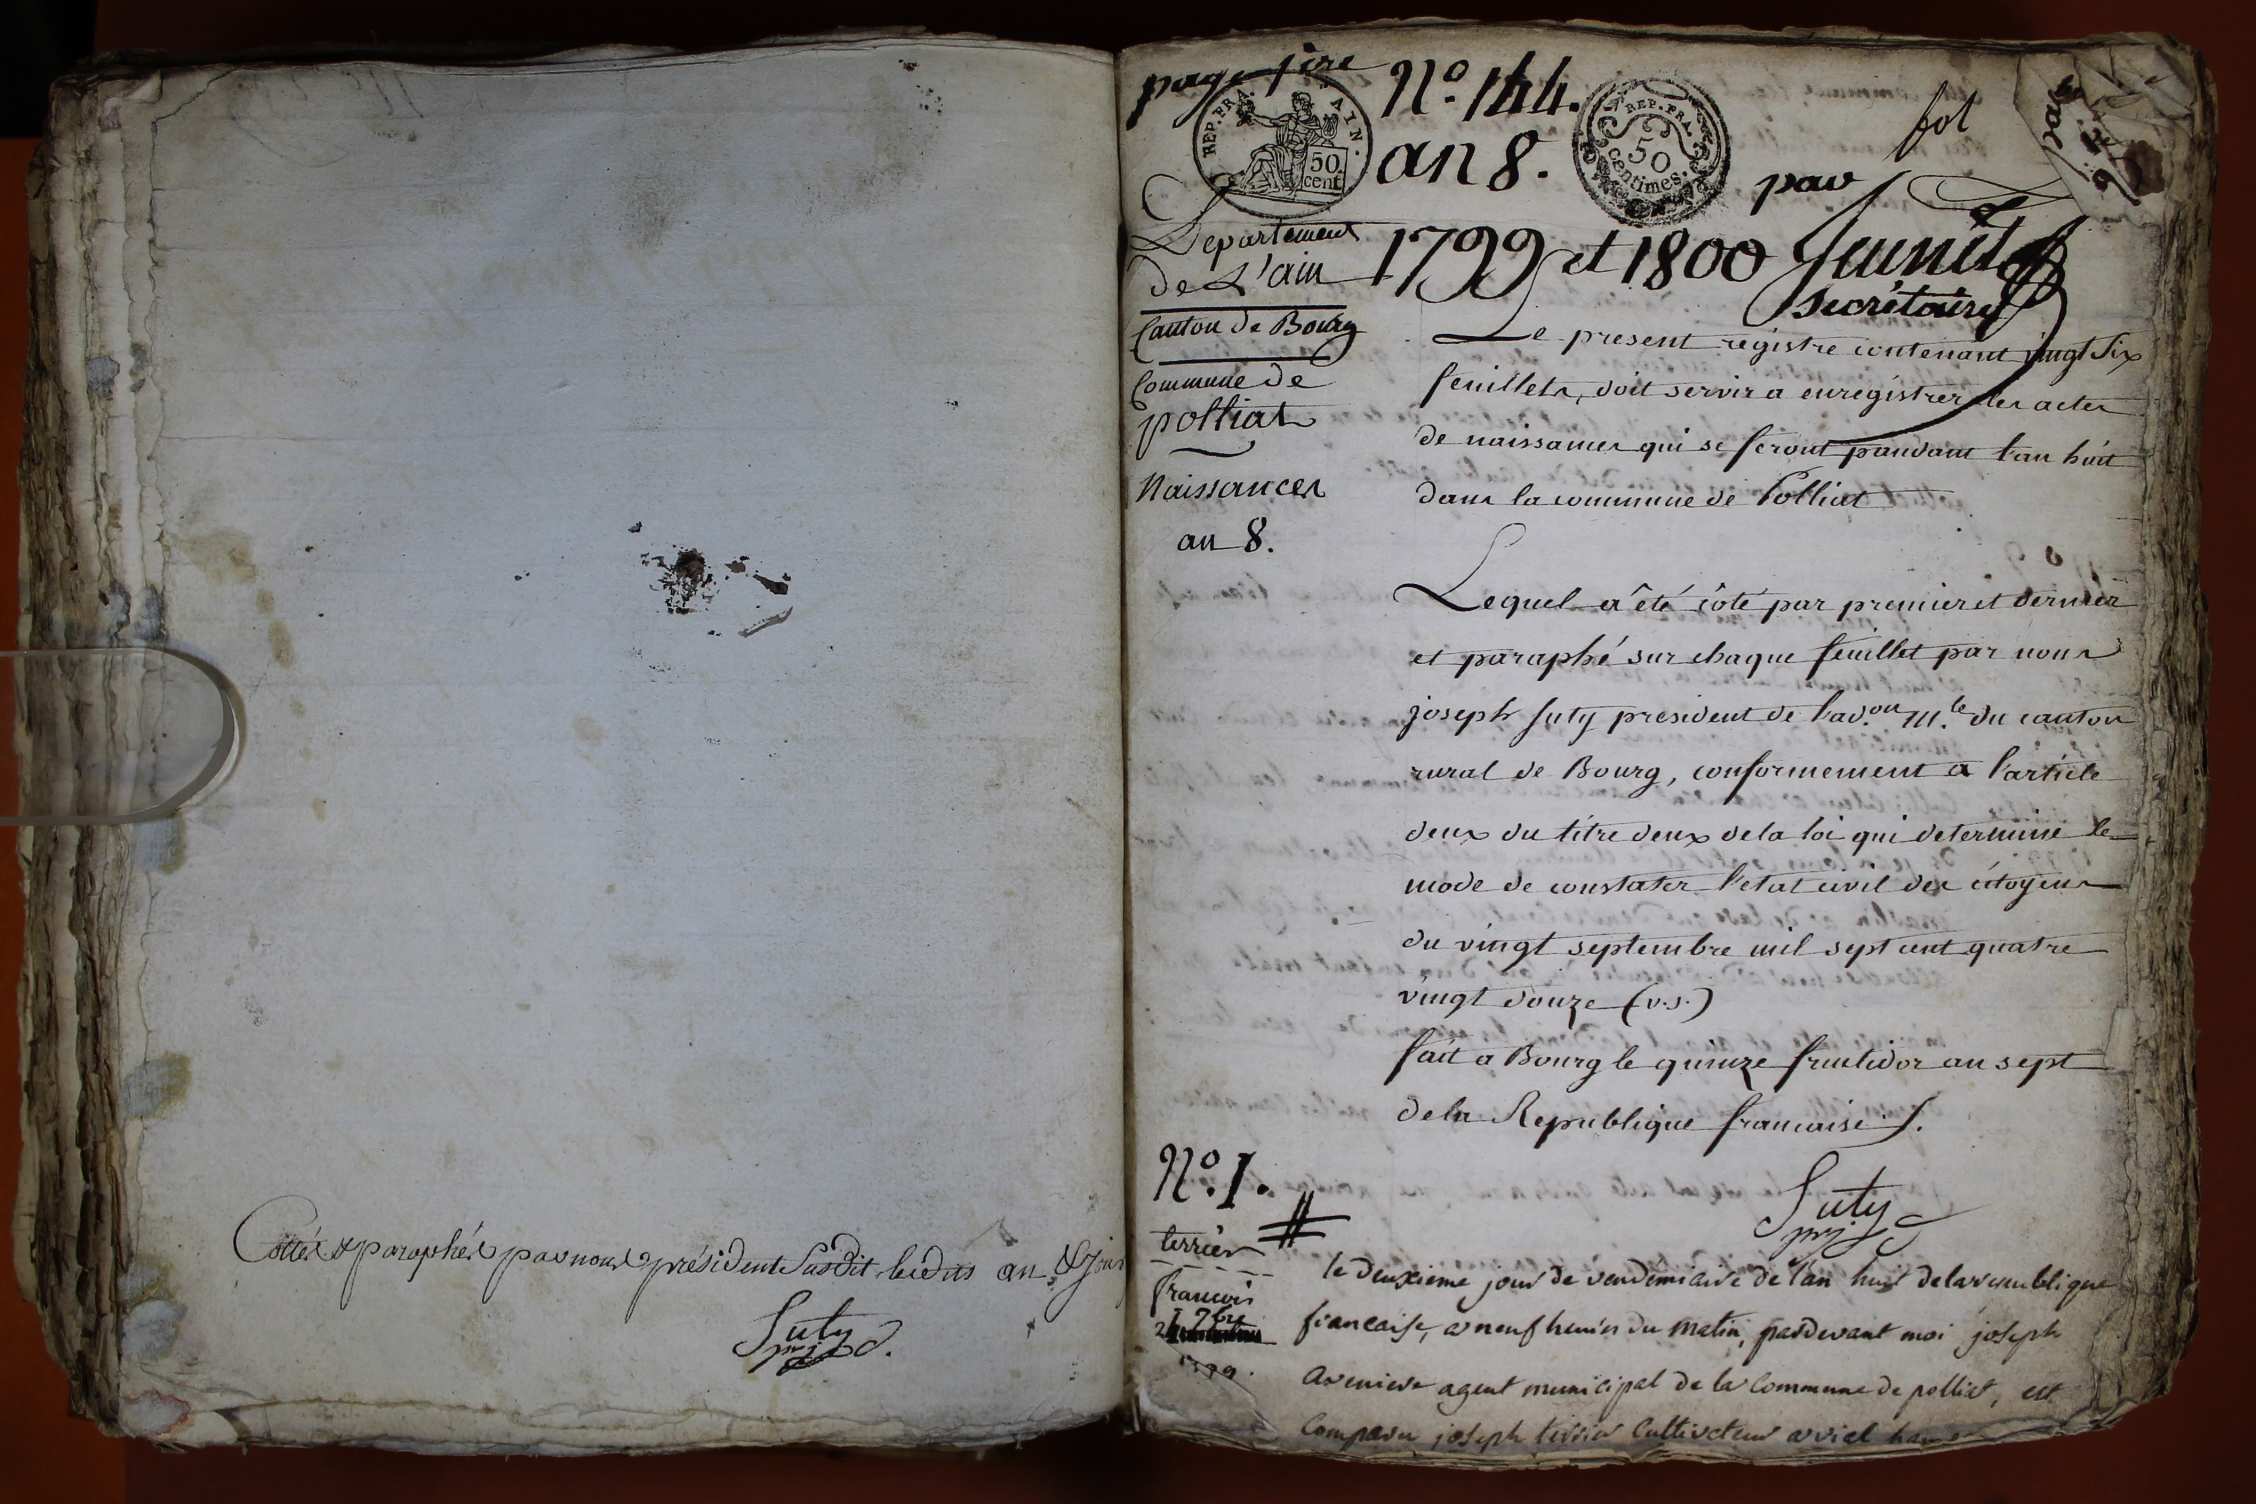 Cottés & paraphés par nous président Susdit les dits an & jour
Suty
page 1ère
N.º 144.
an 8.
REP. FRA. AIN.
50 cent.
REP. FRA.
50
centimes.
fol
par
1799 et 1800
secrétaire
Departement
de L'ain
Canton de Bourg
Commune de
polliat
Naissances
an 8.
Le present régistre contenant vingt Six
feuillets, doit servir a enrégistrer les actes
de naissances qui se feront pandant l'an huit
dans la commune de Polliat
Lequel a été côté par premier et dernier
et paraphé sur chaque feuillet par nous
joseph Suty president de l'ad.on M.le du canton
rural de Bourg, conformement a l'article
deux du titre deux de la loi qui determine le
mode de constater l'etat civil des citoyens
du vingt septembre mil sept cent quatre
vingt douze (v.s.)
fait a Bourg le quinze fructidor an sept
de la Republique francaise.
Suty
N.º 1.
terrier
francois
7bre
le deuxieme jour de vendemiaire de l'an huit de la republique
francaise, a neuf heures du matin, pardevant moi joseph
agent municipal de la Commune de polliat, est
Comparu joseph terrier Cultivateur